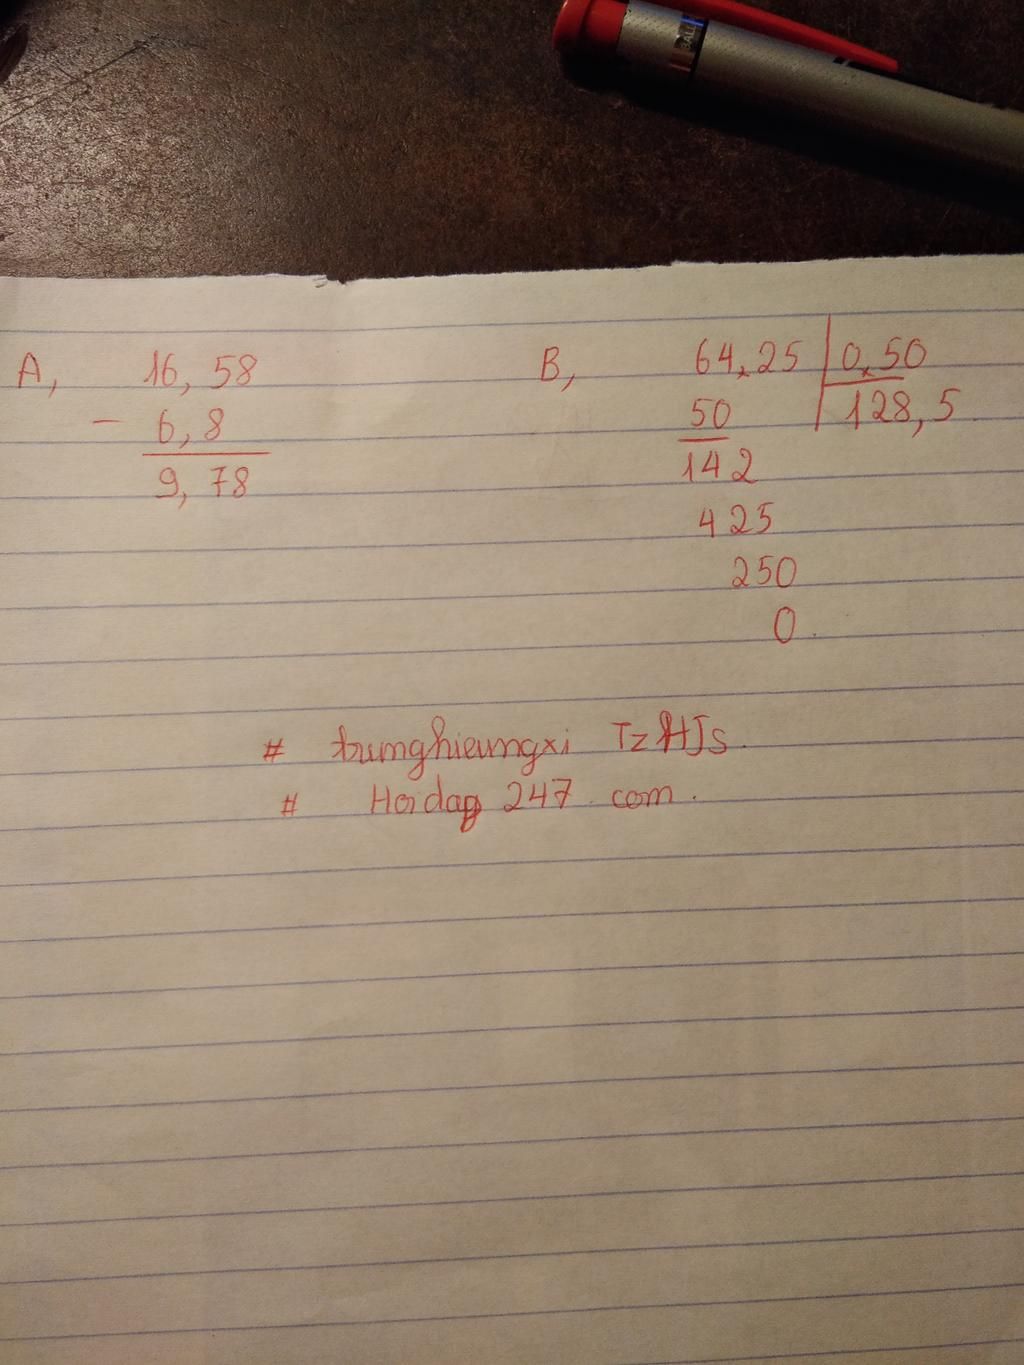 A, 16,58
- 6,8
9,78
B, 64,25 0,50
50 128,5
142
425
250
0
# Tz HJs.
# Hoidap 247.com.